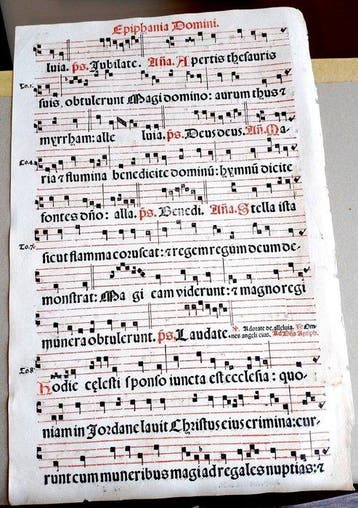 Epiphania Domini.
luia. ps. Jubilate. Aña. Apertis thesauris
To.1.
suis, obtulerunt Magi domino: aurum thus ⁊
myrrham: alle luia. ps. Deus deus. Añ. Ma
To.4.
ria ⁊ flumina benedicite dominū: hymnū dicite
fontes dño: alla. ps. Benedi. Aña. Stella ista
To.7.
sicut flamma coruscat: ⁊ regem regum deum de-
monstrat: Magi eam viderunt: ⁊ magno regi
munera obtulerunt. ps. Laudate. ℟. Adorate de. alleluia. ℣. Om-
nes angeli eius.
To.8.
Hodie cęlesti sponso iuncta est ecclesia: quo-
niam in Jordane lauit Christus eius crimina: cur-
runt cum muneribus magi ad regales nuptias: ⁊